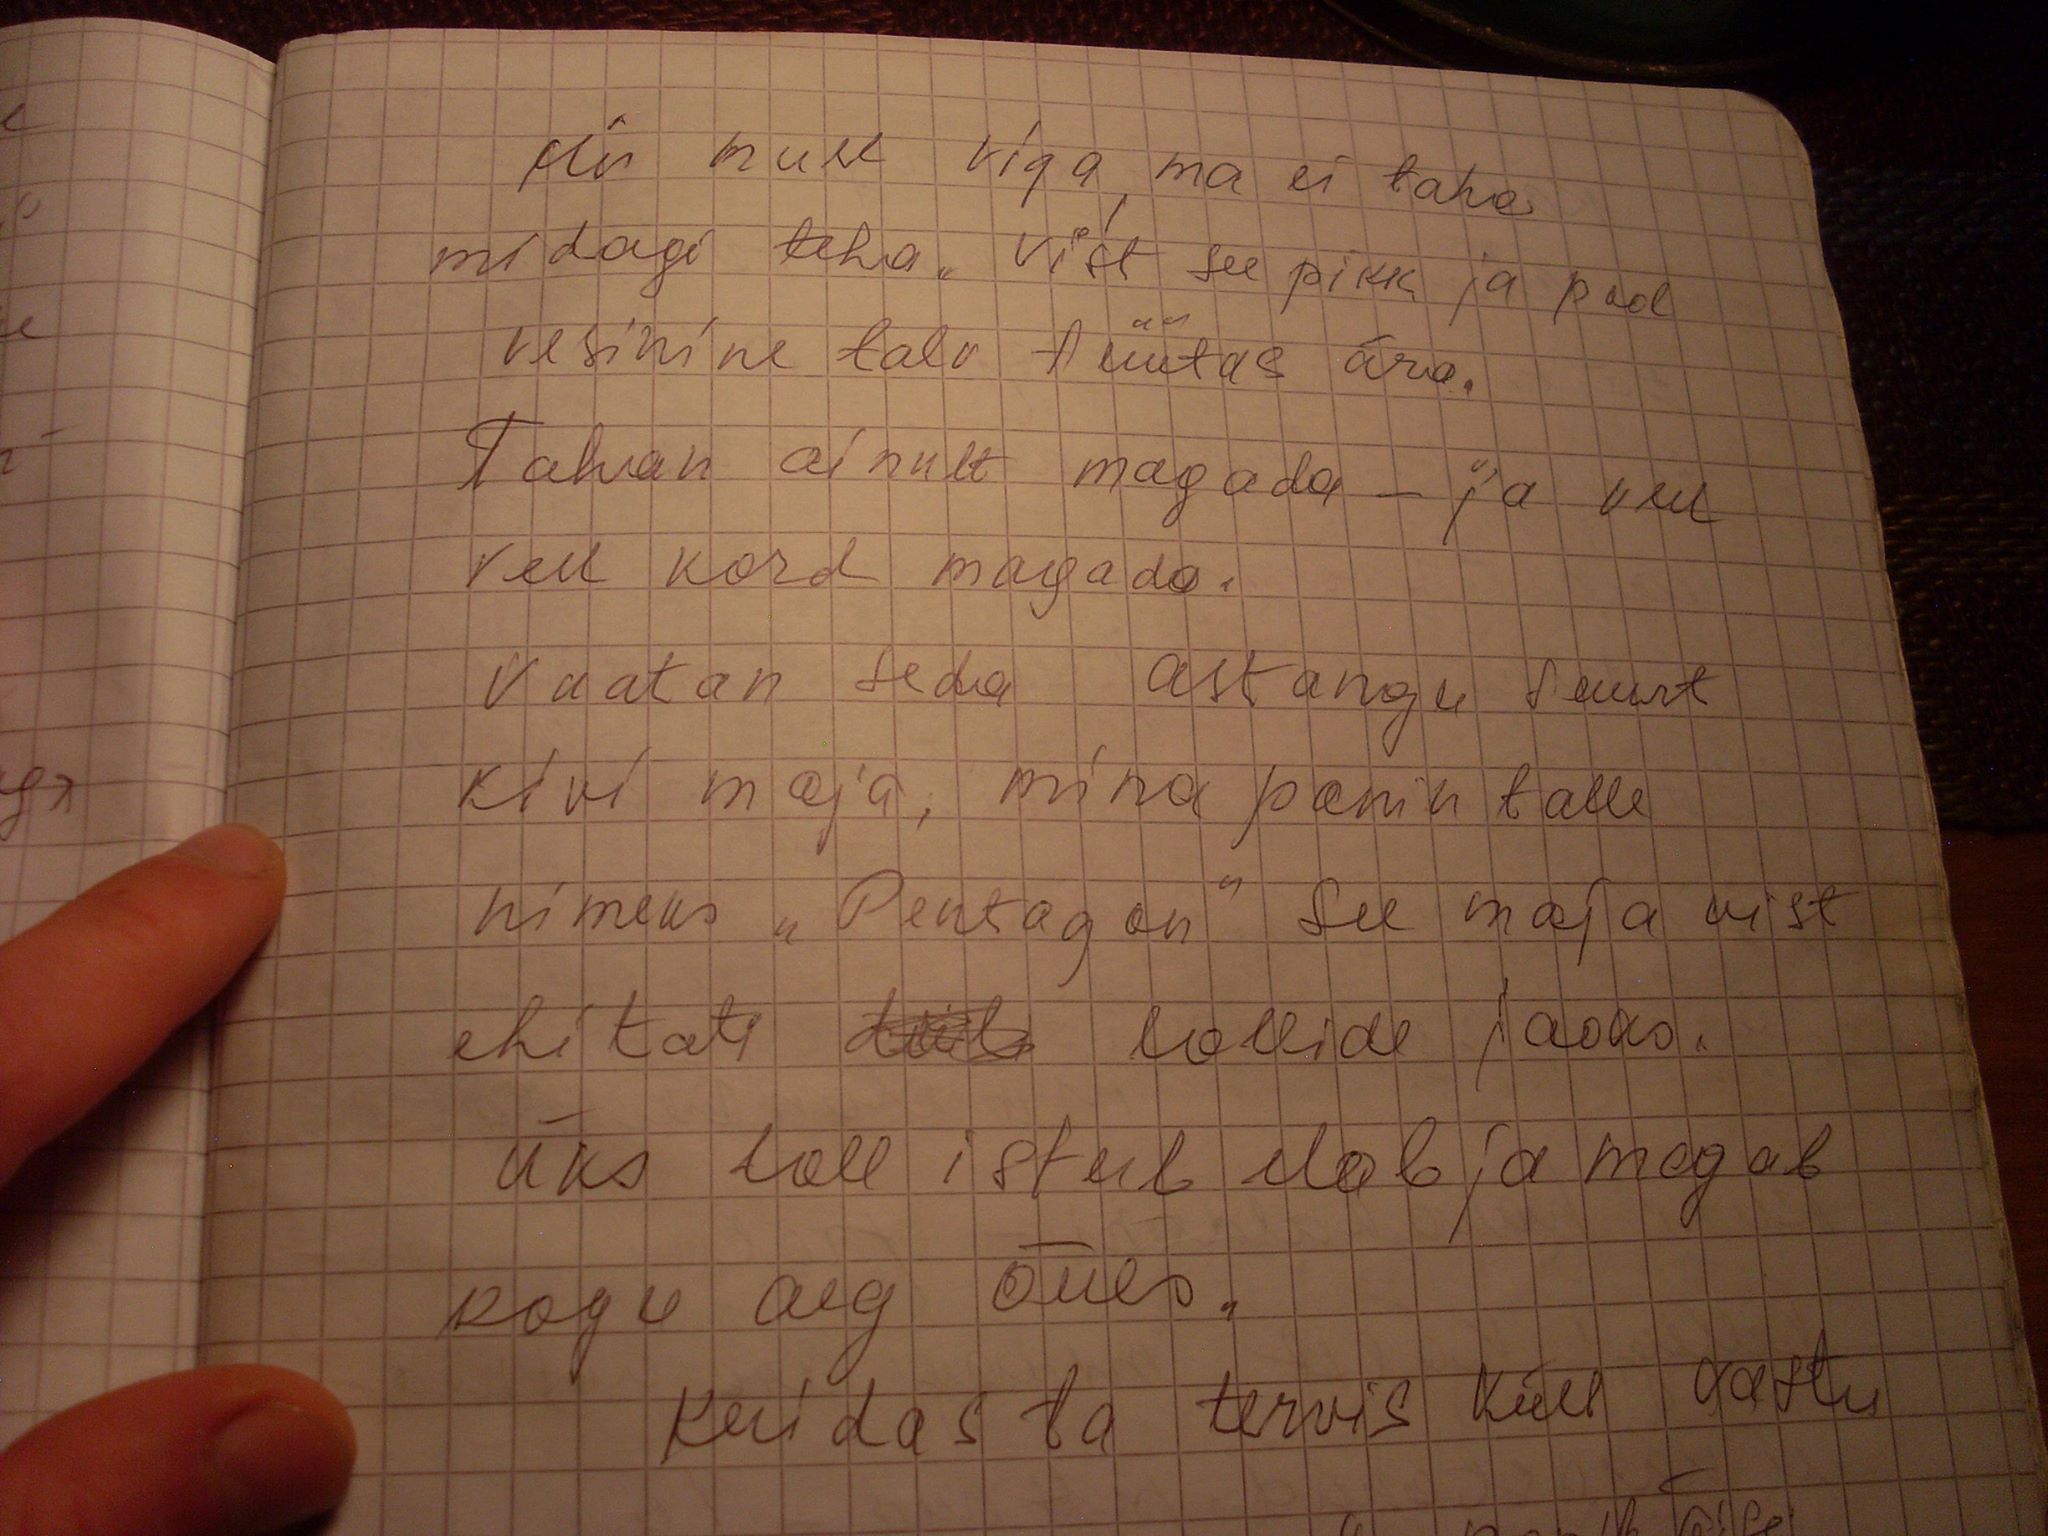 mull viga, ma ei taha
midagi teha. Vist see pikk ja
vesinine talv süütas ära.
Tahan ainult magada – ja veel
veel kord magada.
Vaatan seda astangu suurt
kivi maja, mina panin talle
nimeks „Pentagon" See maja vist
ehitati lollide jaoks.
Üks loll istub elab ja magab
kogu aeg õues.
Kuidas ta tervis küll vastu